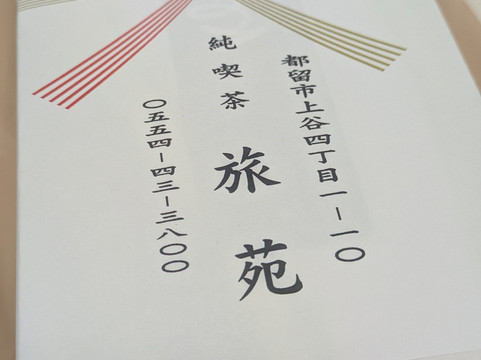 都留市上谷四丁目一ー一〇
純喫茶 旅苑
〇五五四ー四三ー三八〇〇